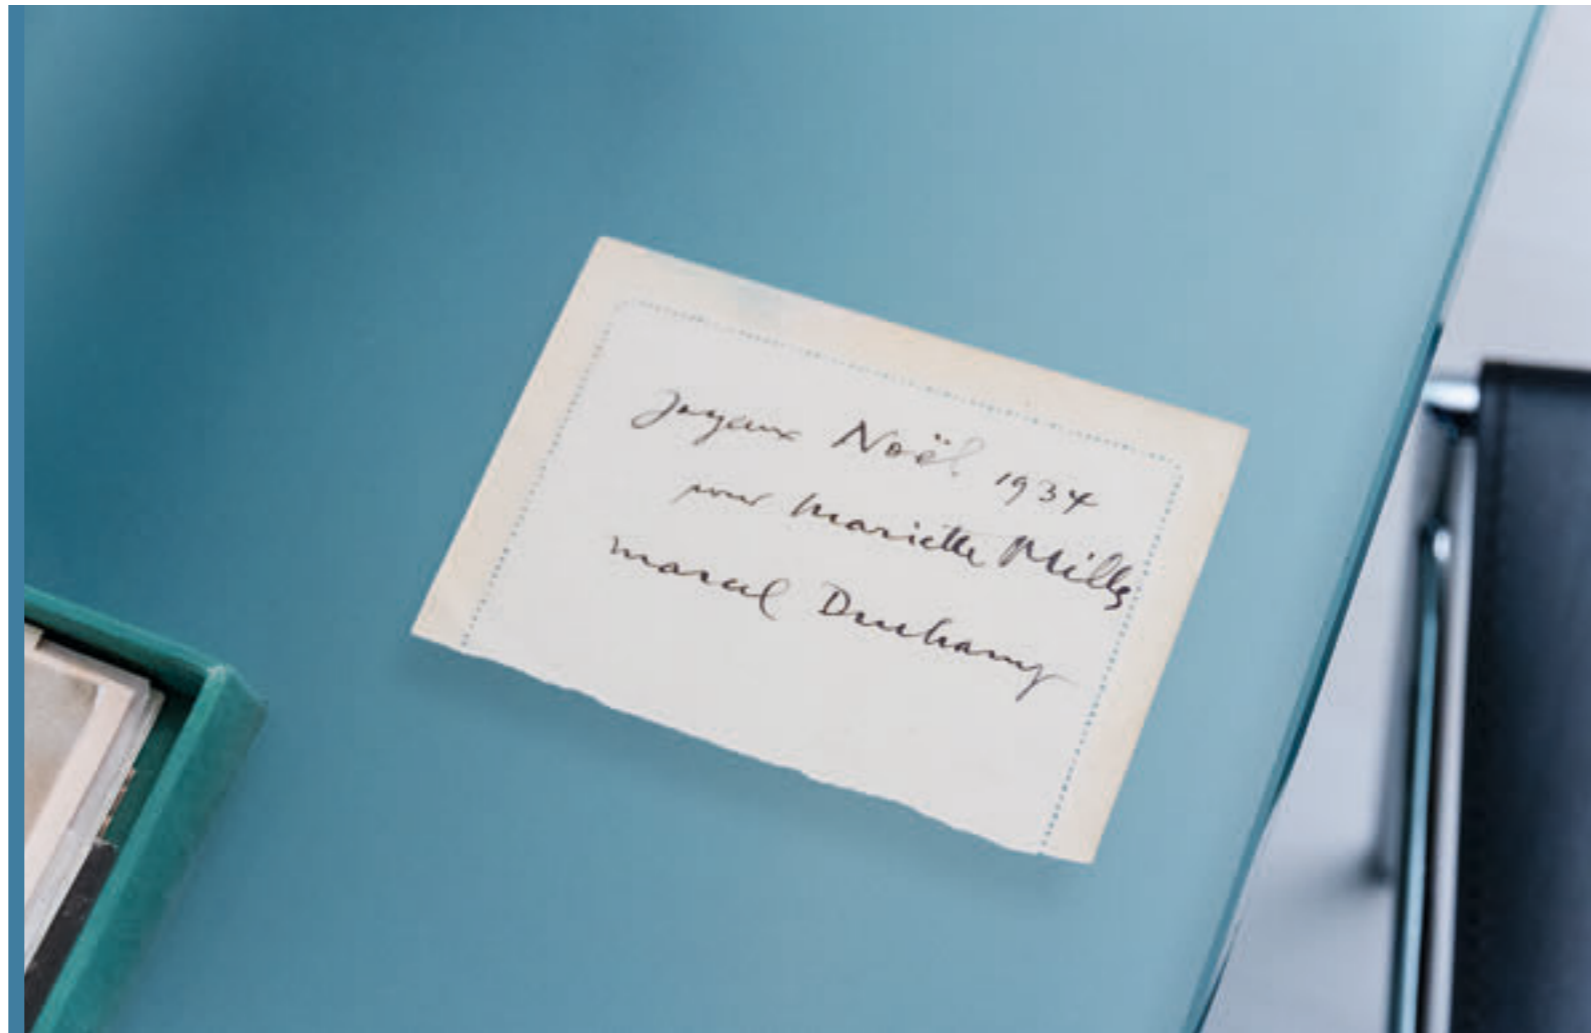 Joyeux Noël 1934
pour Mariette Mills
Marcel Duchamp